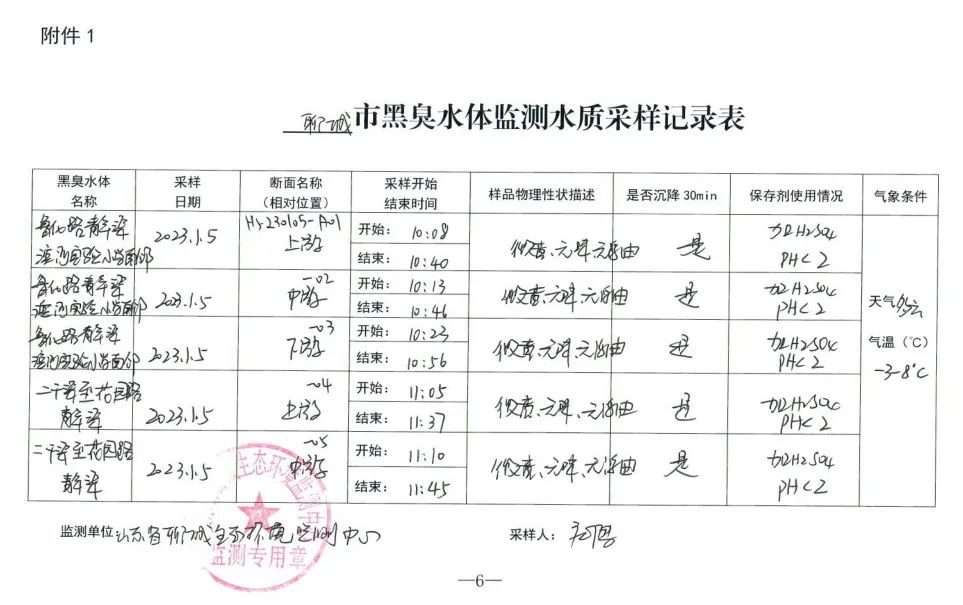 附件 1
聊城市黑臭水体监测水质采样记录表
黑臭水体名称 采样日期 断面名称（相对位置） 采样开始结束时间 样品物理性状描述 是否沉降30min 保存剂使用情况 气象条件
鲁化路青年渠 滨河实验小学南邻 2023.1.5 HJ-230105-A01 上游 开始： 10:08 微黄、无味、无浮油 是 加H2SO4 PH<2
结束： 10:40
鲁化路青年渠 滨河实验小学南邻 2023.1.5 -02 中游 开始： 10:13 微黄、无味、无浮油 是 加H2SO4 PH<2
结束： 10:46
鲁化路青年渠 滨河实验小学南邻 2023.1.5 -03 下游 开始： 10:23 微黄、无味、无浮油 是 加H2SO4 PH<2
结束： 10:56
二干渠至花园路青年渠 2023.1.5 -04 上游 开始： 11:05 微黄、无味、无浮油 是 加H2SO4 PH<2
结束： 11:37
二干渠至花园路青年渠 2023.1.5 -05 中游 开始： 11:10 微黄、无味、无浮油 是 加H2SO4 PH<2
结束： 11:45
天气 多云
气温（℃）
-3-8℃
监测单位：山东省聊城生态环境监测中心 采样人：
生态环境监测中
监测专用章
—6—